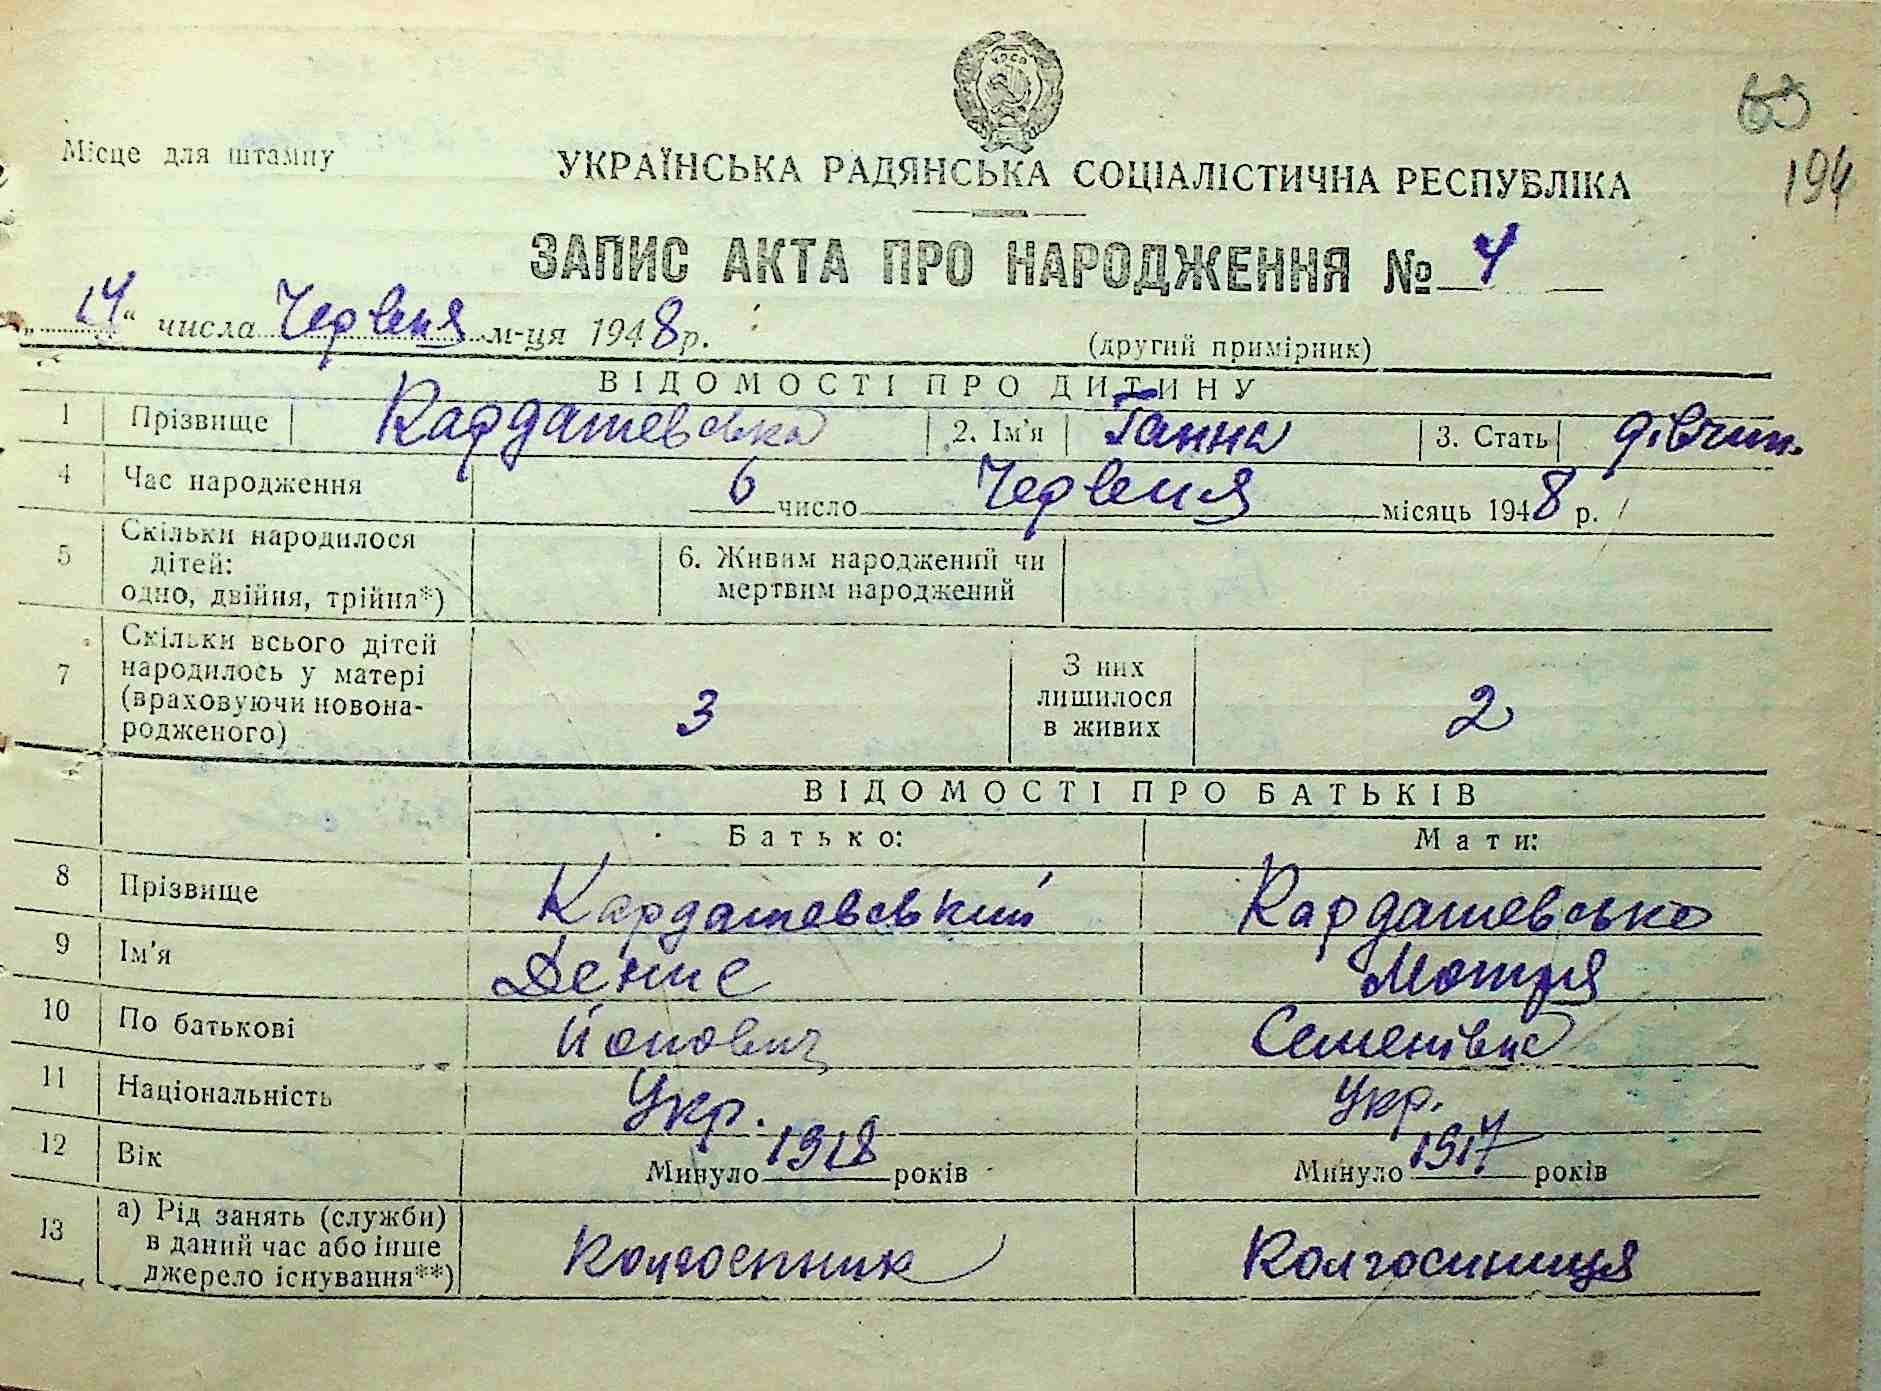 УРСР
63
194
Місце для штампу
УКРАЇНСЬКА РАДЯНСЬКА СОЦІАЛІСТИЧНА РЕСПУБЛІКА
ЗАПИС АКТА ПРО НАРОДЖЕННЯ № 4
„14“ числа Червеня м-ця 1948 р.
(другий примірник)
ВІДОМОСТІ ПРО ДИТИНУ
1 Прізвище Кардашевська 2. Ім'я Ганна 3. Стать дівчин.
4 Час народження 6 число Червеня місяць 1948 р.
5 Скільки народилося
дітей:
одно, двійня, трійня*)
6. Живим народжений чи
мертвим народжений
7 Скільки всього дітей
народилось у матері
(враховуючи новона-
родженого)
3
З них
лишилося
в живих
2
ВІДОМОСТІ ПРО БАТЬКІВ
Батько: Мати:
8 Прізвище Кардашевський Кардашевська
9 Ім'я Денис Мотря
10 По батькові Йонович Семенівна
11 Національність Укр. Укр.
12 Вік Минуло 1918 років Минуло 1917 років
13 а) Рід занять (служби)
в даний час або інше
джерело існування**)
Колгоспник Колгоспниця